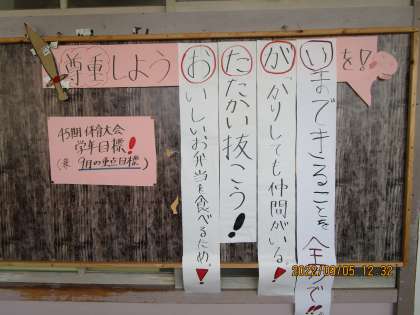 尊重しよう
おいしいお弁当を食べるため。!
たたかい抜こう!
がっかりしても仲間がいる。!
いまできることを全力で!!
を!
45期 体育大会
学年目標!
(兼 9月の重点目標)
2022/09/05 12:32